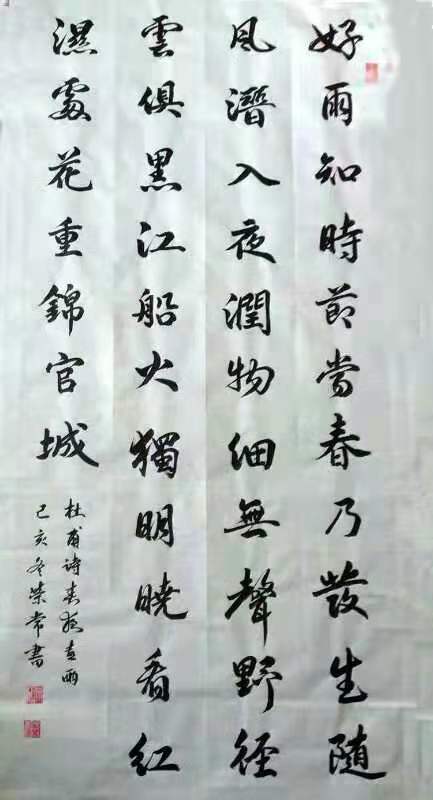 好雨知時節當春乃發生隨
風潛入夜潤物細無聲野徑
雲俱黑江船火獨明曉看紅
濕處花重錦官城
杜甫詩春夜喜雨
己亥冬榮常書